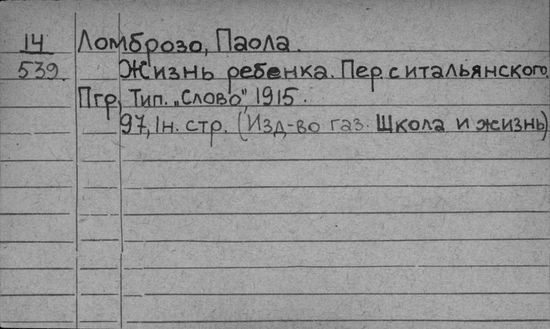 14 Ломброзо, Паола.
539 Жизнь ребенка. Пер с итальянского
Пгр, Тип. „Слово", 1915.
97, 1н. стр. (Изд-во газ. Школа и жизнь)